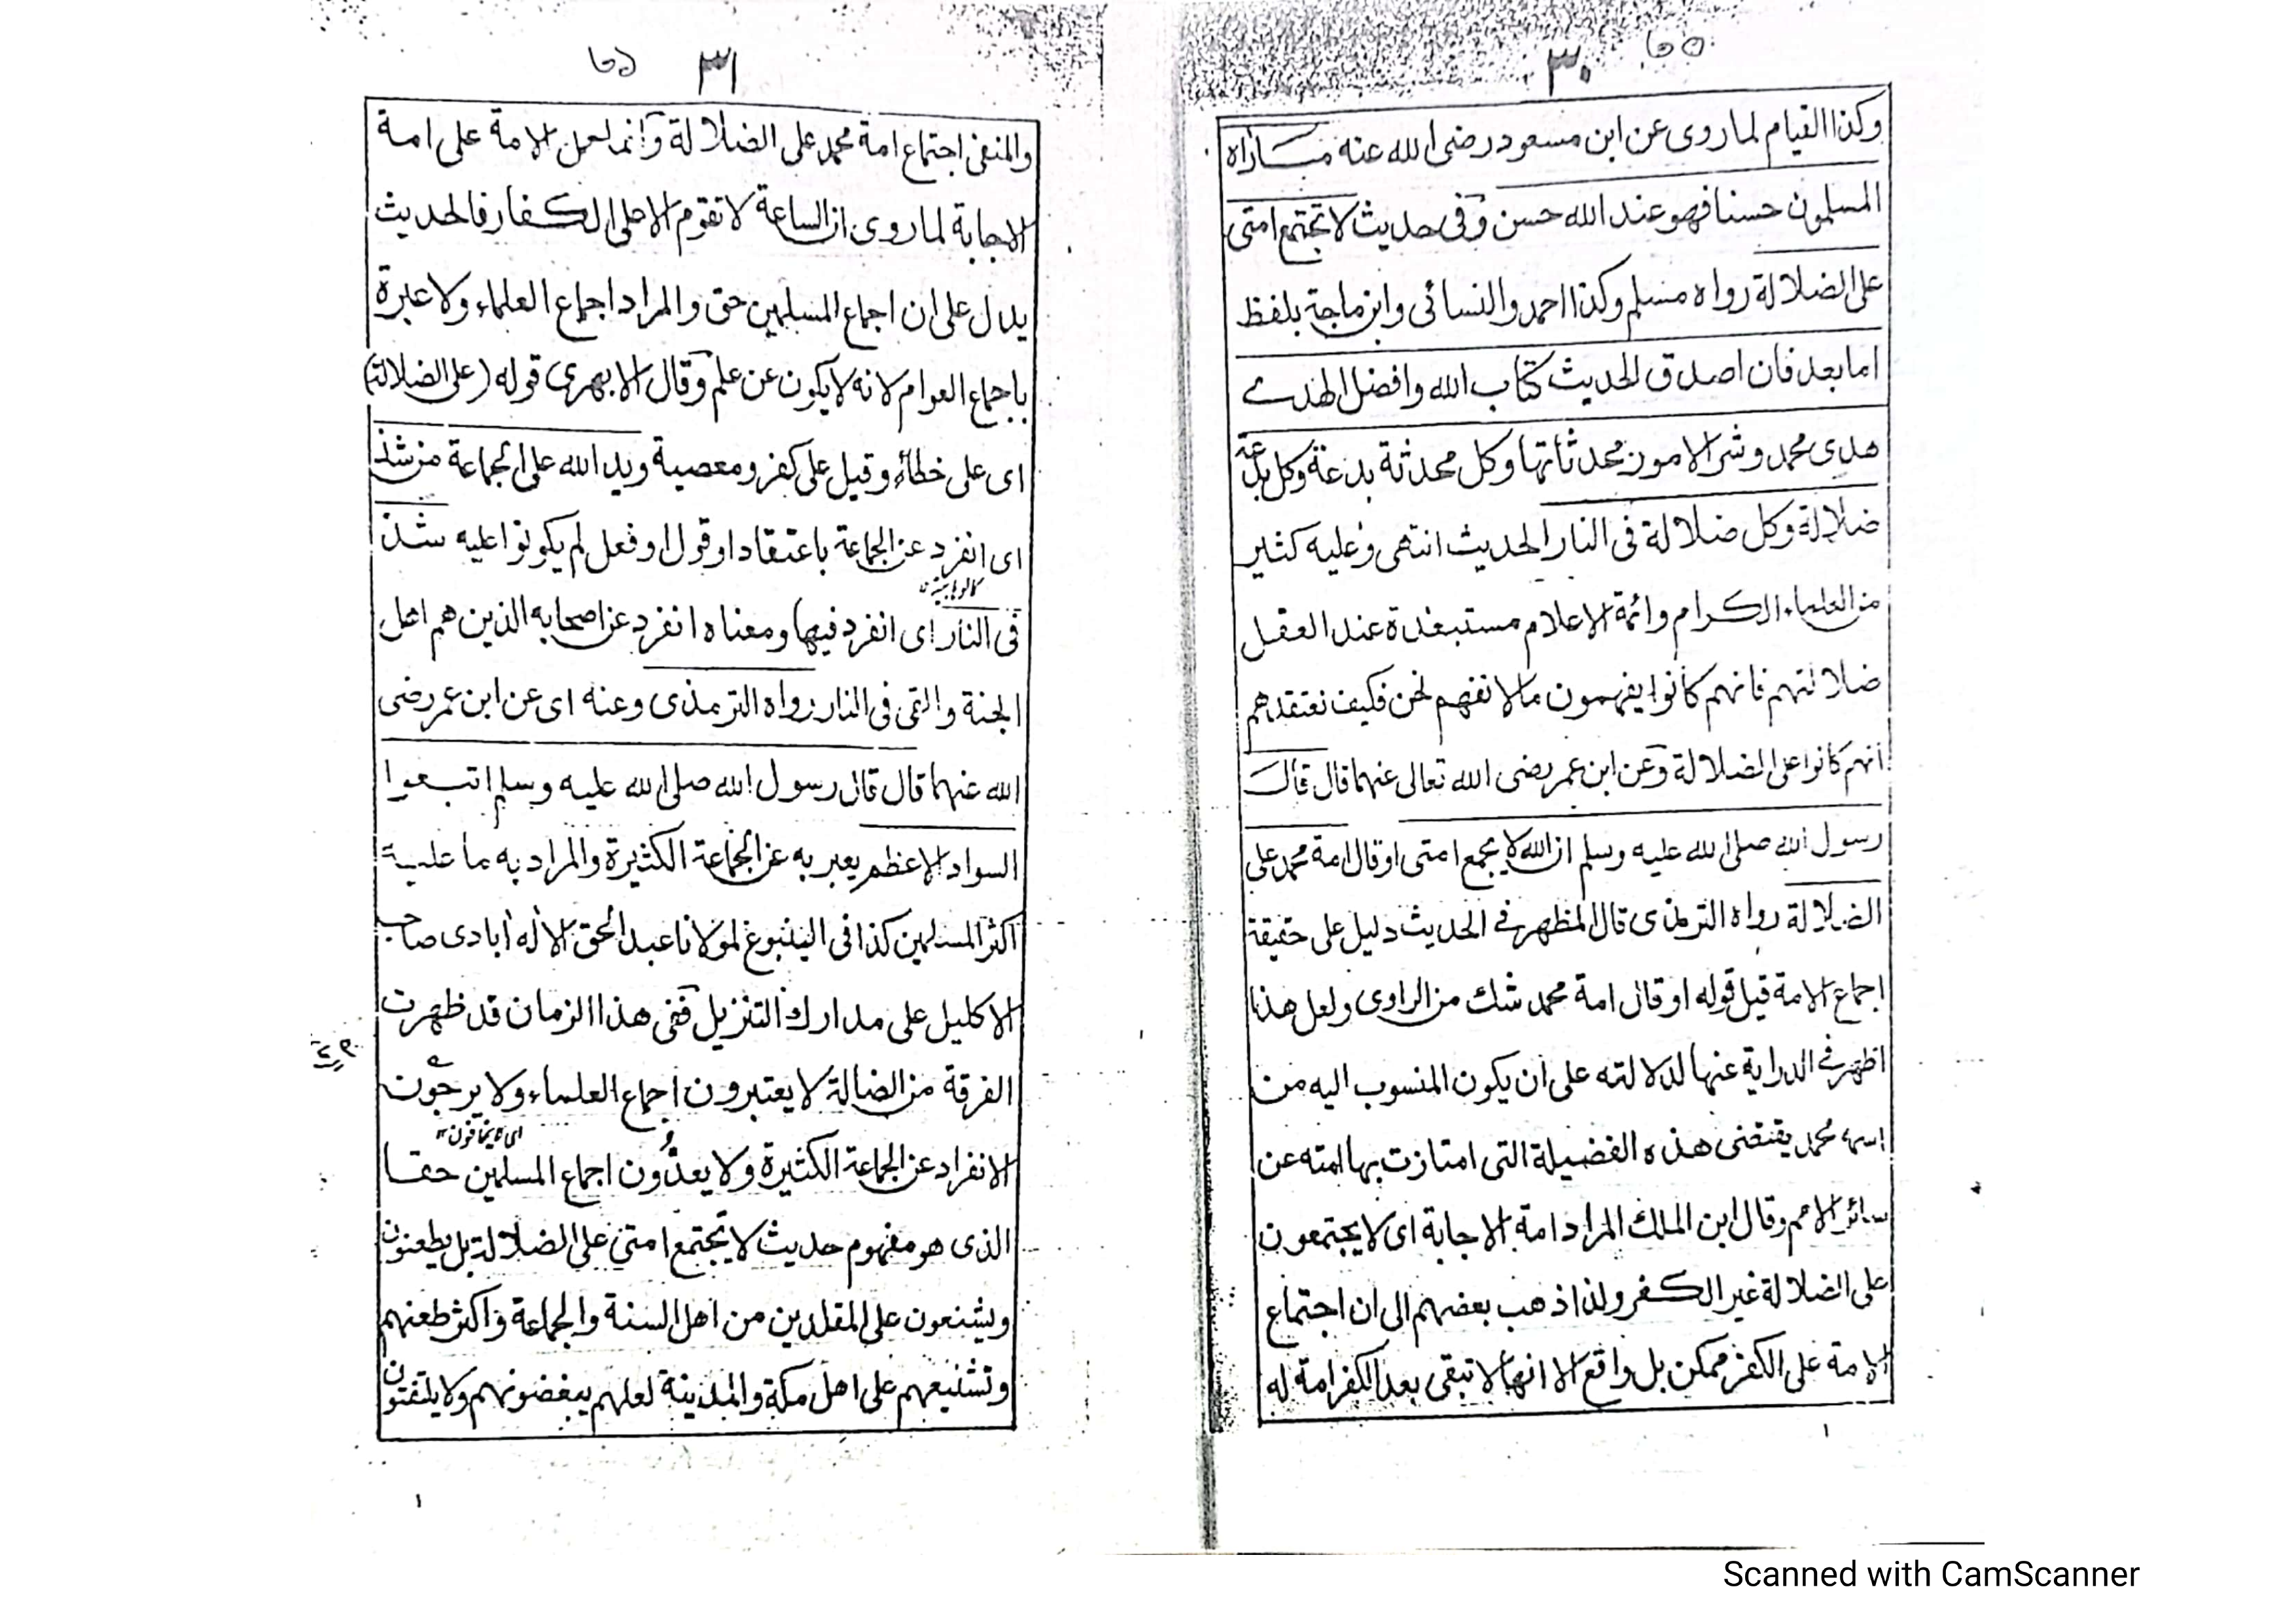 ٣٠
وكذا القيام لما روى عن ابن مسعود رضى الله عنه ما رآه
المسلمون حسنا فهو عند الله حسن وفى حديث لا تجتمع امتى
على الضلالة رواه مسلم وكذا احمد والنسائى وابن ماجة بلفظ
اما بعد فان اصدق الحديث كتاب الله وافضل الهدے
هدى محمد وشر الامور محدثاتها وكل محدثة بدعة وكل بدعة
ضلالة وكل ضلالة فى النار الحديث انتهى وعليه كثير
من العلماء الكرام وائمة الاعلام مستبعدة عند العقل
ضلالتهم فانهم كانوا يفهمون مالا نفهم نحن فكيف نعتقدهم
انهم كانوا على الضلالة وعن ابن عمر رضى الله تعالى عنهما قال قال
رسول الله صلى الله عليه وسلم ان الله لا يجمع امتى او قال امة محمد على
الضلالة رواه الترمذى قال المظهر فے الحديث دليل على حقيقة
اجماع الامة قيل قوله او قال امة محمد شك من الراوى ولعل هذا
اظهر فے الدراية عنها لدلالته على ان يكون المنسوب اليه من
اسمه محمد يقتضى هذه الفضيلة التى امتازت بها امته عن
سائر الامم وقال ابن الملك المراد امة الاجابة اى لا يجتمعون
على الضلالة غير الكفر ولذا ذهب بعضهم الى ان اجتماع
الامة على الكفر ممكن بل واقع الا انها لا تبقى بعد الكفر امة له
٣١
والمنفى اجتماع امة محمد على الضلالة وانما لعمل الامة على امة
الاجابة لما روى ان الساعة لا تقوم الا على الكفار فالحديث
يدل على ان اجماع المسلمين حق والمراد اجماع العلماء ولا عبرة
باجماع العوام لانه لا يكون عن علم وقال الابهرى قوله (على الضلالة)
اى على خطأ وقيل على كفر ومعصية ويد الله على الجماعة من شذ
اى انفرد عن الجماعة باعتقاد او قول او فعل لم يكونوا عليه شذ
فى النار اى انفرد فيها) ومعناه انفرد عن اصحابه الذين هم اهل
الجنة والقى فى النار رواه الترمذى وعنه اى عن ابن عمر رضى
الله عنهما قال قال رسول الله صلى الله عليه وسلم اتبعوا
السواد الاعظم يعبر به عن الجماعة الكثيرة والمراد به ما عليه
اكثر المسلمين كذا فى الينبوع لمولانا عبد الحق الاله ابادى صاحب
الاكليل على مدارك التنزيل ففى هذا الزمان قد ظهرت
الفرقة من الضالة لا يعتبرون اجماع العلماء ولا يرجون
اى لا يخافون
الانفراد عن الجماعة الكثيرة ولا يعدون اجماع المسلمين حقا
الذى هو مفهوم حديث لا تجتمع امتى على الضلالة بل يطعنون
ويشنعون على المقلدين من اهل السنة والجماعة واكثر طعنهم
وتشنيعهم على اهل مكة والمدينة لعلهم يبغضونهم ولا يلتفتون
Scanned with CamScanner